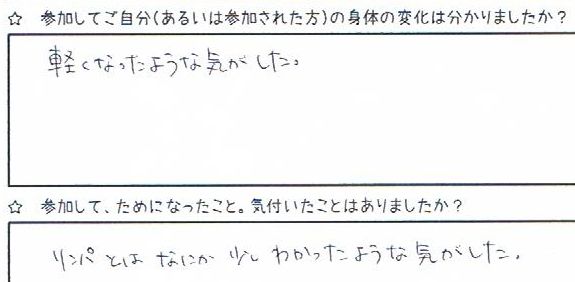 ☆ 参加してご自分(あるいは参加された方)の身体の変化は分かりましたか？
軽くなったような気がした。
☆ 参加して、ためになったこと。気付いたことはありましたか？
リンパとは なにか 少し わかったような気がした。